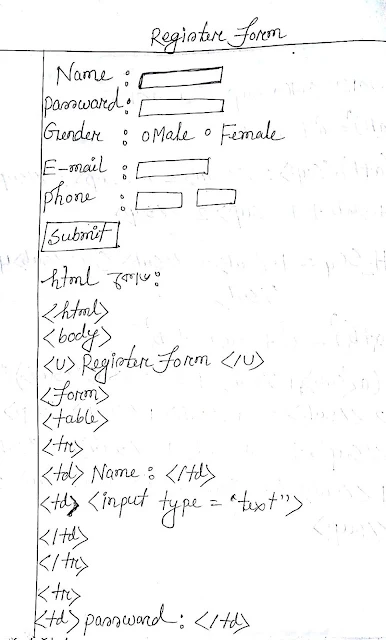 Register Form
Name :
Password :
Gender : Male Female
E-mail :
Phone :
Submit
html কোড:
<html>
<body>
<U> Register Form </U>
<Form>
<table>
<tr>
<td> Name : </td>
<td> <input type = "text">
</td>
</tr>
<tr>
<td> password : </td>